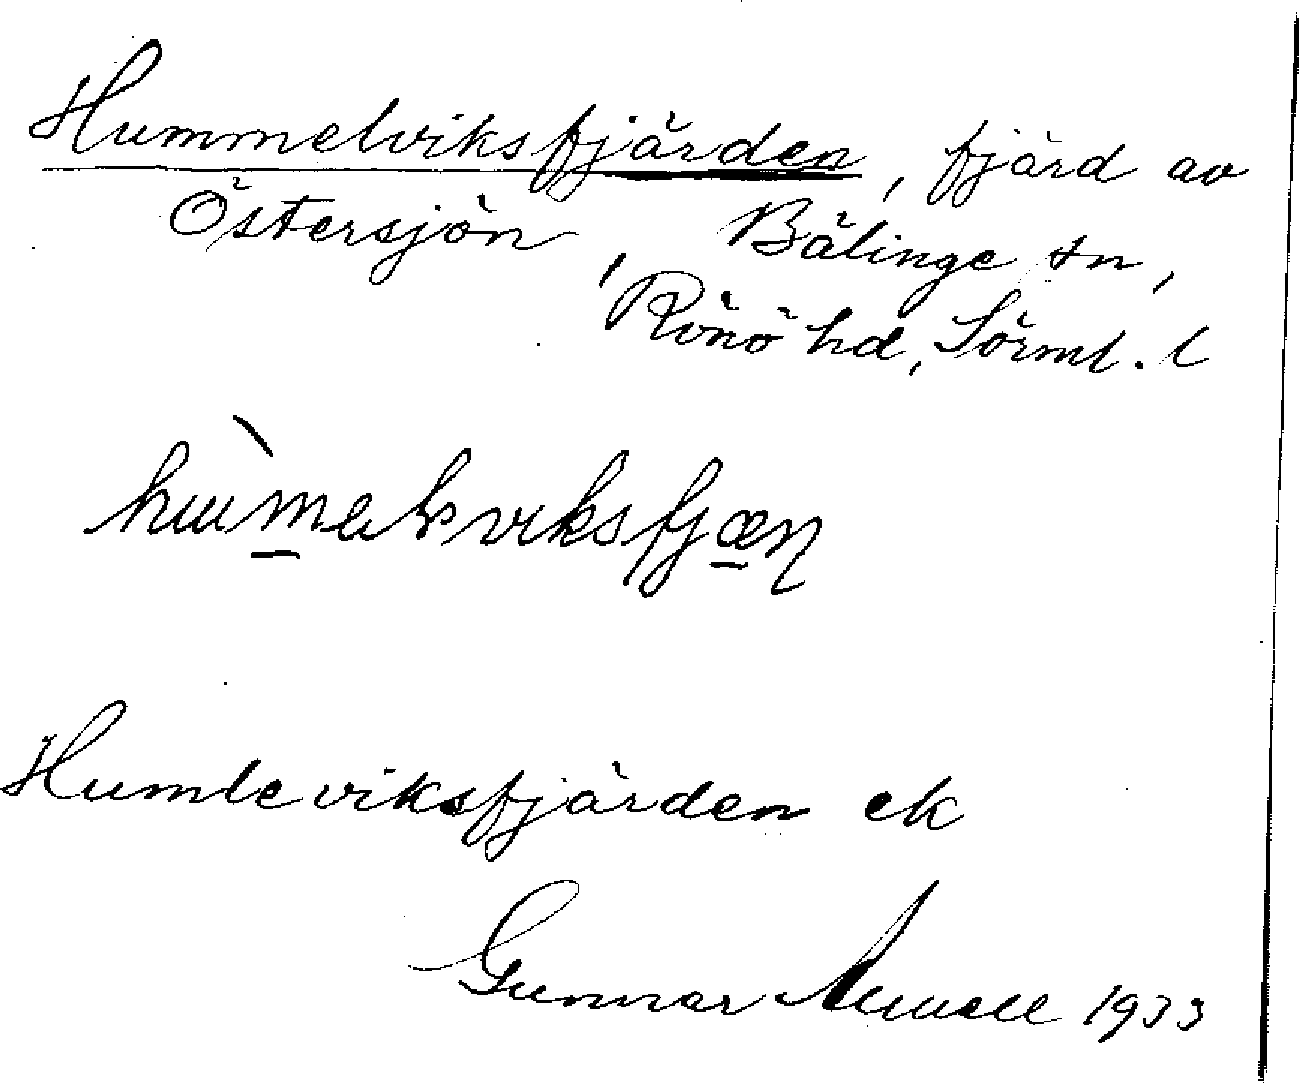 Hummelviksfjärden, fjärd av
Östersjön, Bälinge sn,
Rönö hd, Sörml. l
Humleviksfjärden ek
Gunnar 1933